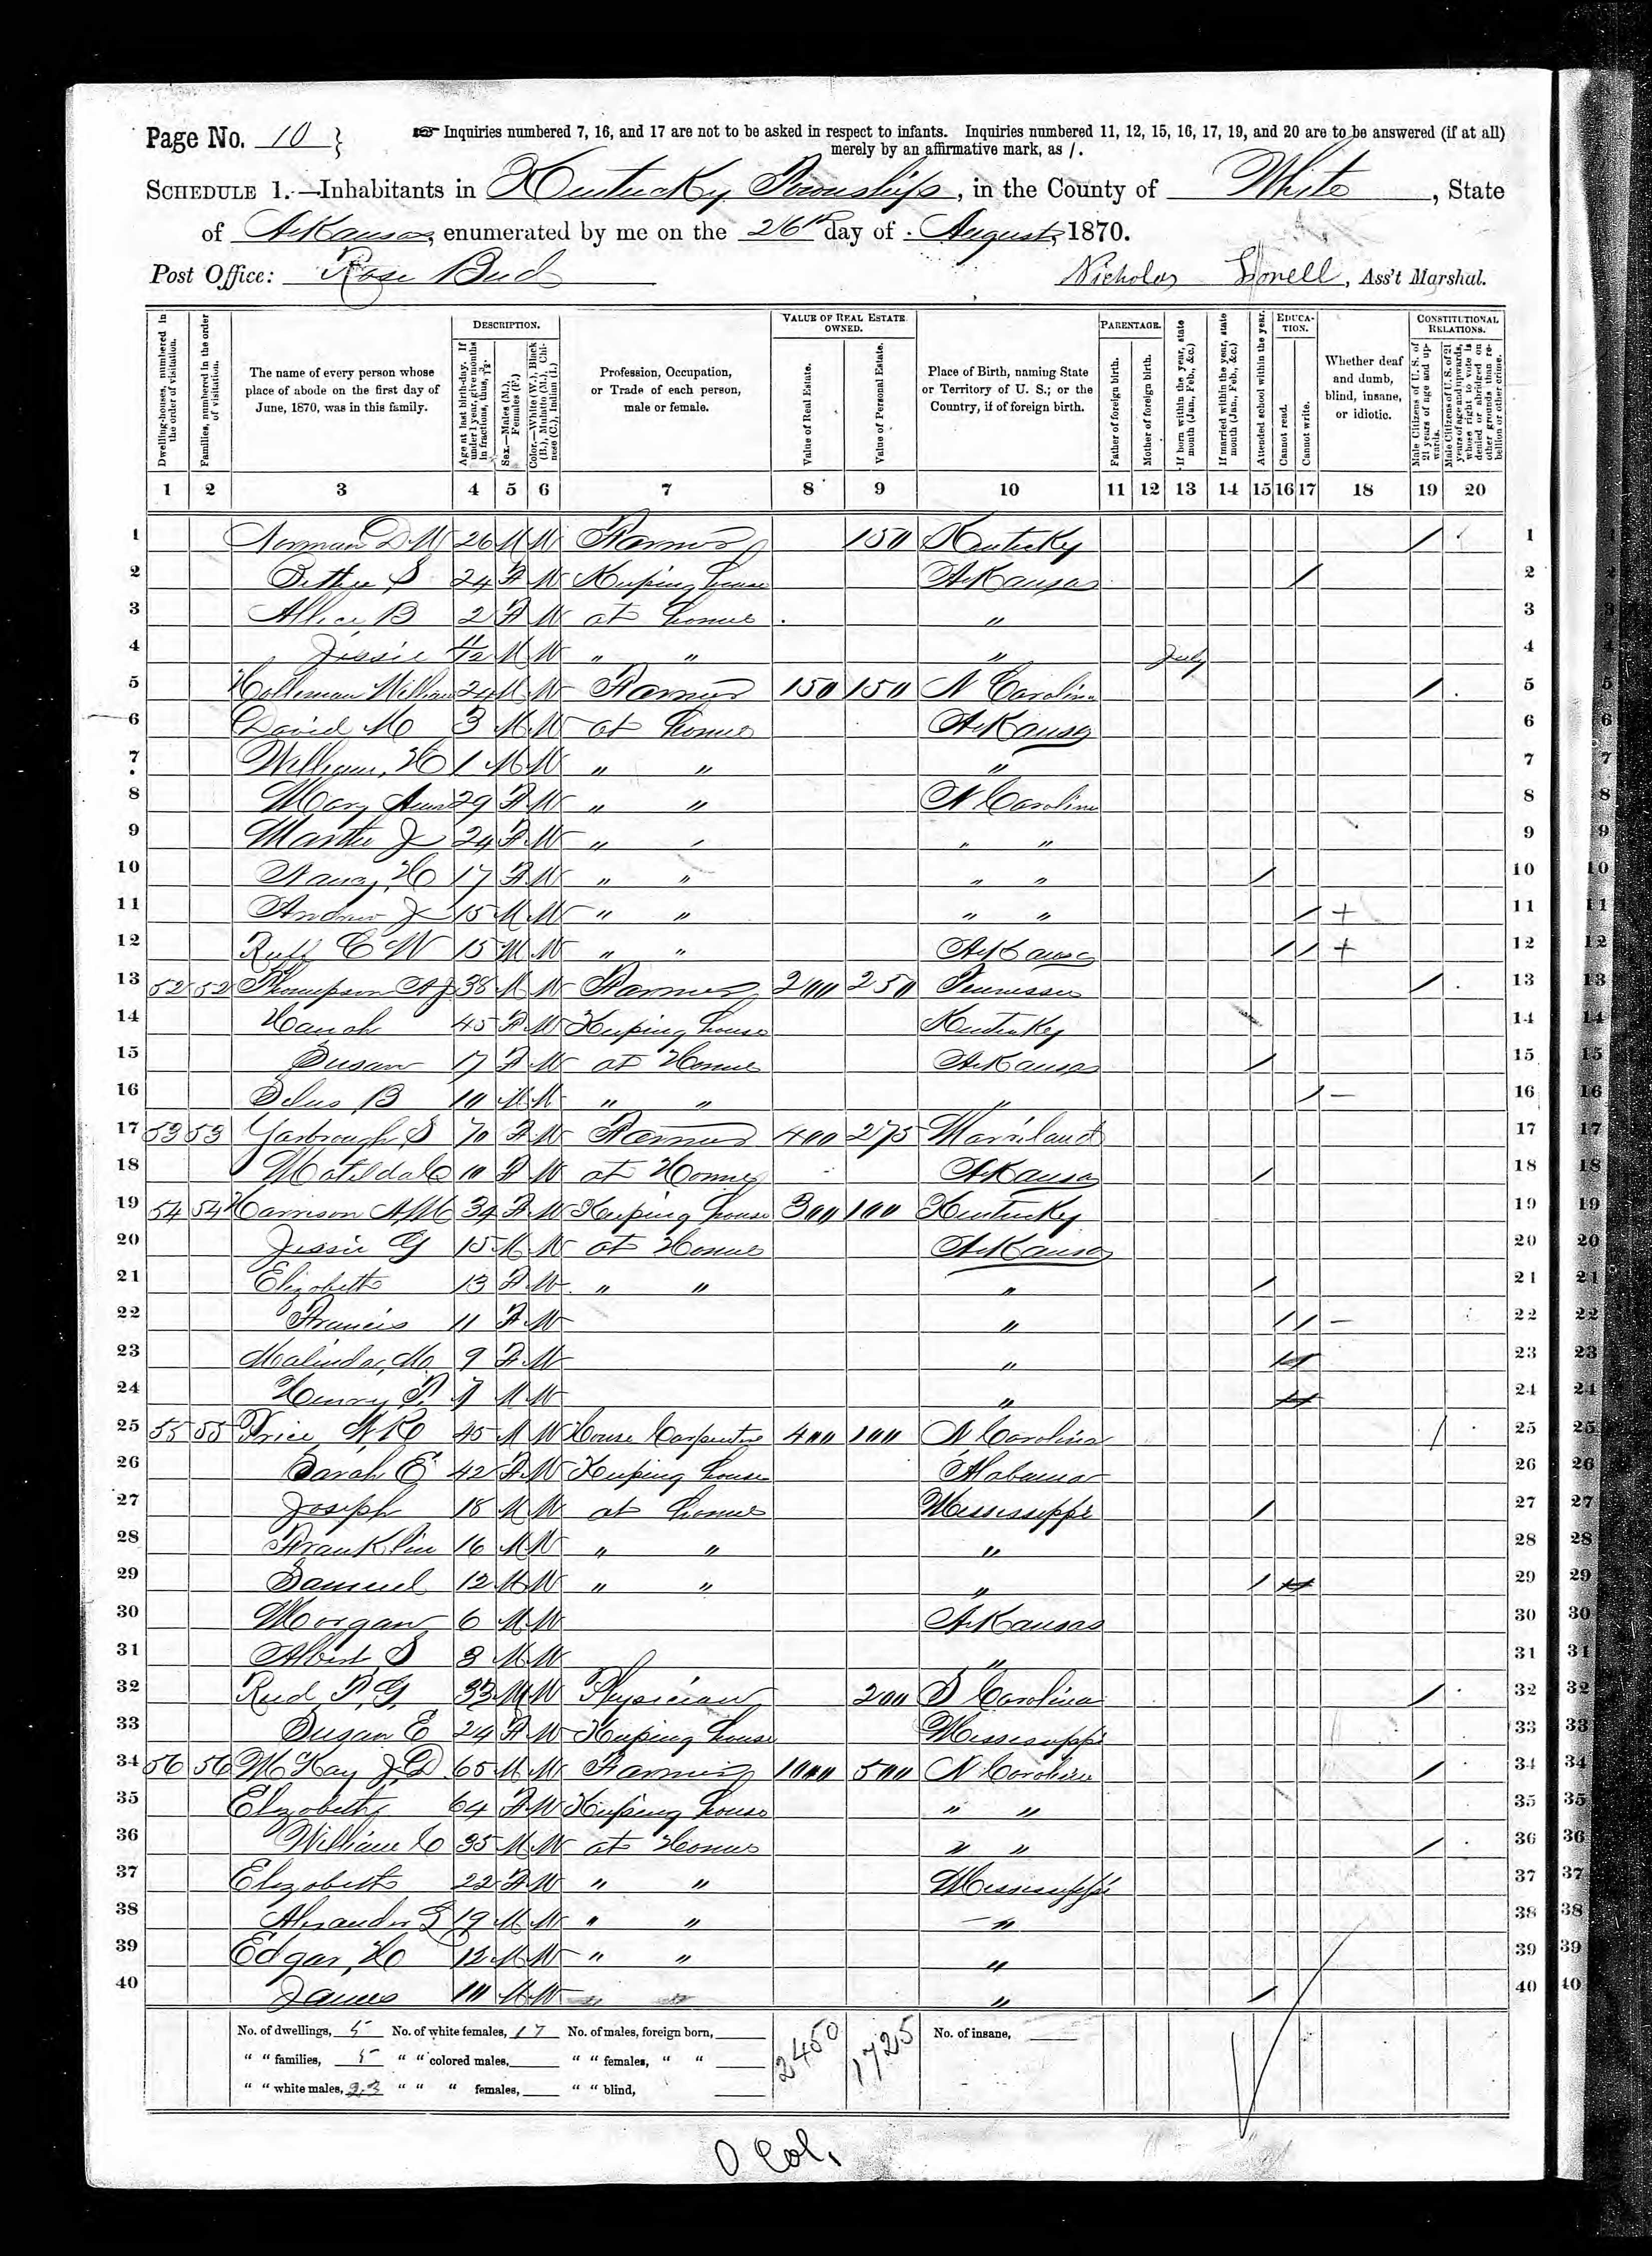 Page No. 10 }
☞ Inquiries numbered 7, 16, and 17 are not to be asked in respect to infants. Inquiries numbered 11, 12, 15, 16, 17, 19, and 20 are to be answered (if at all)
merely by an affirmative mark, as /.
SCHEDULE 1.—Inhabitants in Kentucky Township, in the County of White, State
of Arkansas, enumerated by me on the 26th day of August, 1870.
Post Office: Rose Bud Nicholas , Ass't Marshal.
DESCRIPTION. VALUE OF REAL ESTATE OWNED. PARENTAGE. EDUCATION. CONSTITUTIONAL RELATIONS.
Dwelling-houses, numbered in the order of visitation.
Families, numbered in the order of visitation.
The name of every person whose place of abode on the first day of June, 1870, was in this family.
Age at last birth-day. If under 1 year, give months in fractions, thus, 3/12.
Sex.—Males (M.), Females (F.)
Color.—White (W.), Black (B.), Mulatto (M.), Chinese (C.), Indian (I.)
Profession, Occupation, or Trade of each person, male or female.
Value of Real Estate.
Value of Personal Estate.
Place of Birth, naming State or Territory of U. S.; or the Country, if of foreign birth.
Father of foreign birth.
Mother of foreign birth.
If born within the year, state month (Jan., Feb., &c.)
If married within the year, state month (Jan., Feb., &c.)
Attended school within the year.
Cannot read.
Cannot write.
Whether deaf and dumb, blind, insane, or idiotic.
Male Citizens of U. S. of 21 years of age and upwards.
Male Citizens of U. S. of 21 years of age and upwards, whose right to vote is denied or abridged on other grounds than rebellion or other crime.
1 2 3 4 5 6 7 8 9 10 11 12 13 14 15 16 17 18 19 20
1 Norman D M 26 M W Farmer 150 Kentucky / 1
2 S 24 F W Keeping house Arkansas / 2
3 Allice B 2 F W at home " 3
4 Jessie 11/12 M W " " " July 4
5 Holleman William 24 M W Farmer 150 150 N Carolina / 5
6 David M 3 M W at home Arkansas 6
7 William, H 1 M W " " " 7
8 Mary Ann 29 F W " " N Carolina 8
9 Martha J 24 F W " " " " 9
10 Nancy, H 17 F W " " " " / 10
11 Andrew J 15 M W " " " " / + 11
12 Ruff C W 15 M W " " Arkansas / / + 12
13 52 52 Thompson A J 38 M W Farmer 200 250 Tennessee / 13
14 Hanah 45 F W Keeping house Kentucky 14
15 Susan 17 F W at Home Arkansas / 15
16 B 10 M W " " " / – 16
17 53 53 Yarbrough, S 70 F W Farmer 400 275 Marriland 17
18 Matilda C 10 F W at Home Arkansas / 18
19 54 54 Harrison A M 34 F W Keeping house 300 100 Kentucky 19
20 Jessie G 15 M W at Home Arkansas 20
21 Elizabeth 13 F W " " " / 21
22 Francis 11 F W " / / – 22
23 Malinda, M. 9 F W " 23
24 Henry P. 7 M W " 24
25 55 55 Price W, R 45 M W House Carpenter 400 100 N Carolina / 25
26 Sarah E 42 F W Keeping house Alabama 26
27 Joseph 18 M W at home Mississippi / 27
28 Franklin 16 M W " " " 28
29 Samuel 12 M W " " " / 29
30 Morgan 6 M W Arkansas 30
31 Albert S 3 M W " 31
32 Reed P. G. 33 M W Physician 200 S Carolina / 32
33 Susan E 24 F W Keeping house Mississippi 33
34 56 56 McKay J D 65 M W Farming 1000 500 N Carolina / 34
35 Elizabeth 64 F W Keeping house " " 35
36 William C 35 M W at Home " " / 36
37 Elizabeth 22 F W " " Mississippi 37
38 Alexander 19 M W " " " 38
39 Edgar, H 12 M W " " " 39
40 James 10 M W " " " / 40
No. of dwellings, 5 No. of white females, 17 No. of males, foreign born, 2450 1725 No. of insane,
" " families, 5 " " colored males, " " females, " "
" " white males, 23 " " " females, " " blind,
0 Col.